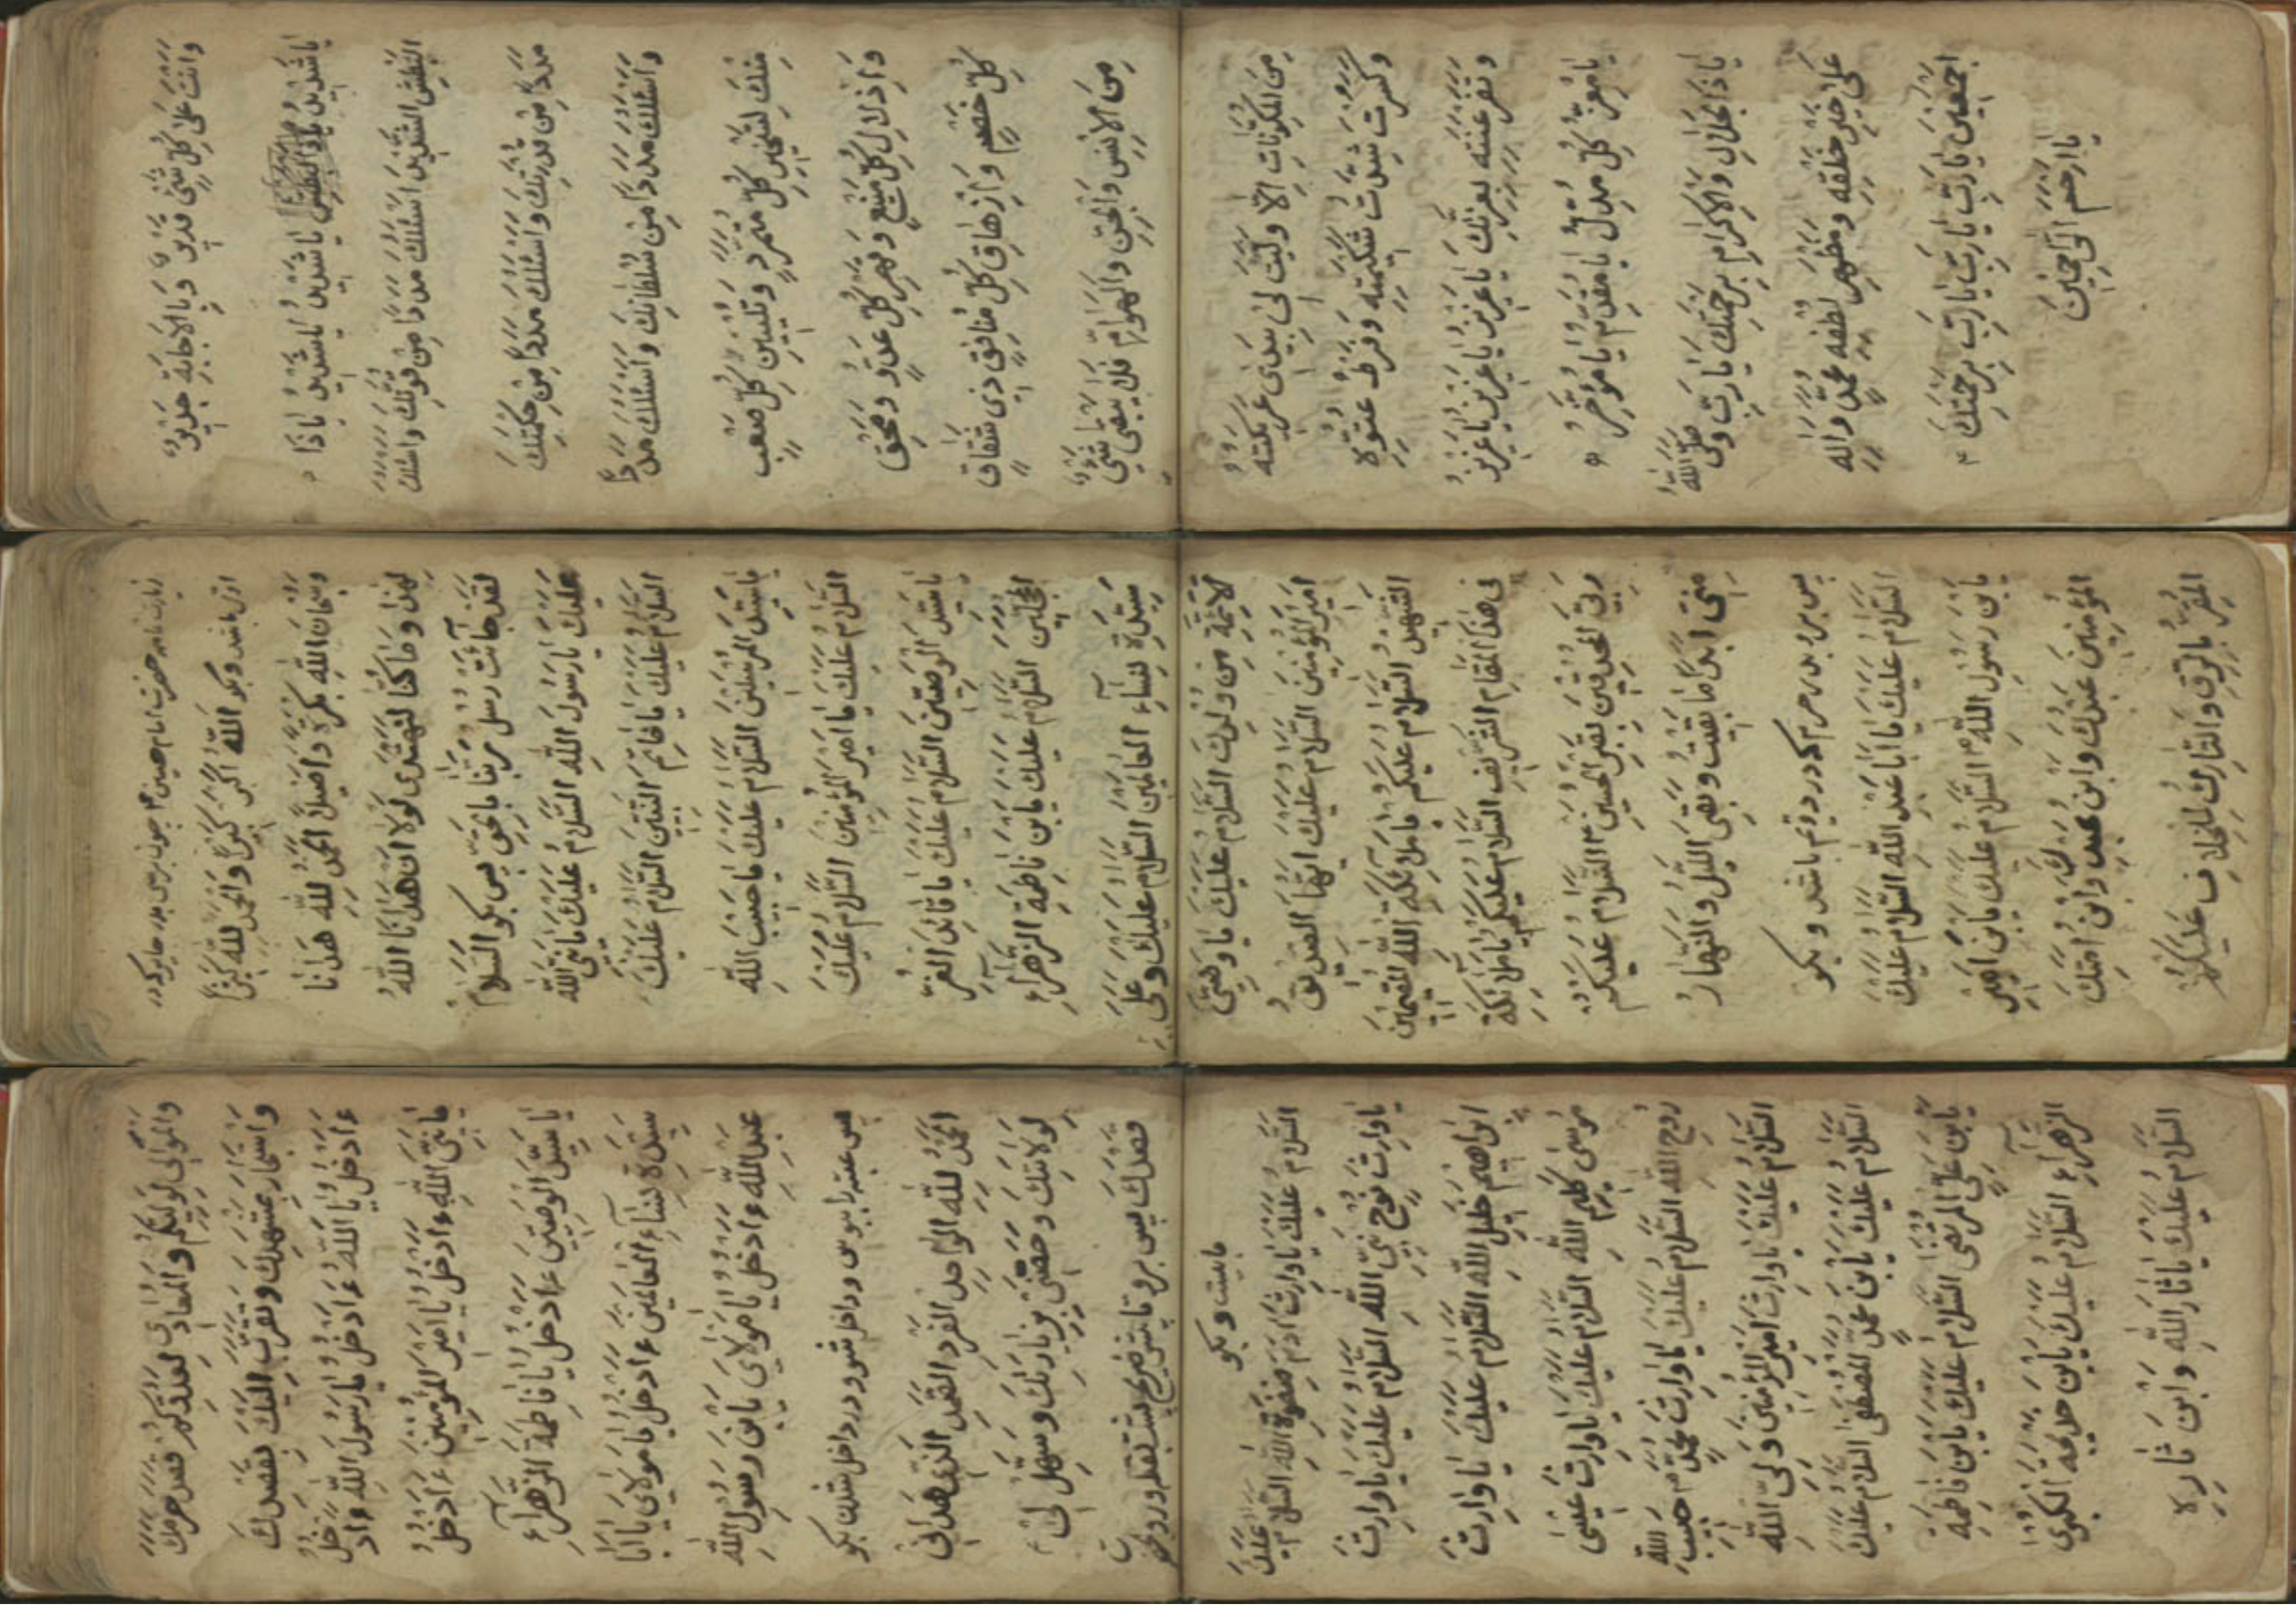 وَاَنْتَ عَلى كُلِّ شَئٍ قَدِيرٌ وَبِالاِجابَةِ جَدِيرٌ
يا شَدِيدُ يا شَدِيدُ يا شَدِيدُ يا ذَا
البَطْشِ الشَّدِيدِ اَسْئَلُكَ مَدَدًا مِنْ قُوَّتِكَ وَاَسْئَلُكَ
مَدَدًا مِنْ قُدْرَتِكَ وَاَسْئَلُكَ مَدَدًا مِنْ حِكْمَتِكَ
وَاَسْئَلُكَ مَدَدًا مِنْ سُلْطانِكَ وَاَسْئَلُكَ مَدَدًا
مِنْكَ لِتَسْخِيرِ كُلِّ مُتَمَرِّدٍ وَتَلْيِينِ كُلِّ صَعْبٍ
وَاِذْلالِ كُلِّ مَنِيعٍ وَقَهْرِ كُلِّ عَدُوٍّ وَمَحْقِ
كُلِّ خَصْمٍ وَاِزْهاقِ كُلِّ مُنافِقٍ ذِى شِقاقٍ
مِنَ الاِنْسِ وَالْجِنِّ وَالْهَوامِّ فَلا يَبْقى شَئٌ
مِنَ المُكَوَّناتِ اِلاّ وَلَيَّنْتَ لى عَرِيكَتَهُ
وَكَسَرْتَ شِدَّتَ شَكِيمَتِهِ وَفَرْطَ عُتُوِّهِ
وَتَفَرْعُنَتِهِ بِعِزَّتِكَ يا عَزِيزُ يا عَزِيزُ يا عَزِيزُ
يا مُعِزَّ كُلِّ مُذَلٍّ يا مُقَدِّمُ يا مُؤَخِّرُ
يا ذَا الجَلالِ وَالاِكْرامِ بِرَحْمَتِكَ يا رَبِّ وَصَلَّى اللهُ
عَلى خَيْرِ خَلْقِهِ وَمَظْهَرِ لُطْفِهِ مُحَمَّدٍ وَالِهِ
اَجْمَعِينَ يا رَبِّ يا رَبِّ يا رَبِّ بِرَحْمَتِكَ
يا اَرْحَمَ الرّاحِمِينَ
زیارت نامه حضرت امام حسین چون برسی بدر
بگو اَللهُ اَكْبَرُ كَبِيرًا وَالْحَمْدُ لِلّهِ كَثِيرًا
وَسُبْحانَ اللهِ بُكْرَةً وَاَصِيلاً اَلْحَمْدُ لِلّهِ هَدانا
لِهذا وَما كُنّا لِنَهْتَدِىَ لَوْلا اَنْ هَدانَا اللهُ
لَقَدْ جائَتْ رُسُلُ رَبِّنا بِالْحَقِّ پس بگو اَلسَّلامُ
عَلَيْكَ يا رَسُولَ اللهِ اَلسَّلامُ عَلَيْكَ يا نَبِىَّ اللهِ
اَلسَّلامُ عَلَيْكَ يا خاتِمَ النَّبِيِّينَ اَلسَّلامُ عَلَيْكَ
يا سَيِّدَ الْمُرْسَلِينَ اَلسَّلامُ عَلَيْكَ يا حَبِيبَ اللهِ
اَلسَّلامُ عَلَيْكَ يا اَمِيرَ الْمُؤْمِنِينَ اَلسَّلامُ عَلَيْكَ
يا سَيِّدَ الْوَصِيِّينَ اَلسَّلامُ عَلَيْكَ يا قائِدَ الْغُرِّ
الْمُحَجَّلِينَ اَلسَّلامُ عَلَيْكَ يَابْنَ فاطِمَةَ الزَّهْراءِ
سَيِّدَةِ نِساءِ الْعالَمِينَ اَلسَّلامُ عَلَيْكَ وَعَلَى
الاَئِمَّةِ مِنْ وُلْدِكَ اَلسَّلامُ عَلَيْكَ يا وَصِىَّ
اَمِيرِ الْمُؤْمِنِينَ اَلسَّلامُ عَلَيْكَ اَيُّهَا الصِّدِّيقُ
الشَّهِيدُ اَلسَّلامُ عَلَيْكُمْ يا مَلائِكَةَ اللهِ الْمُقِيمِينَ
فى هذَا الْمَقامِ الشَّرِيفِ اَلسَّلامُ عَلَيْكُمْ يا مَلائِكَةَ
رَبِّى الْمُحْدِقِينَ بِقَبْرِ الْحُسَيْنِ اَلسَّلامُ عَلَيْكُمْ
مِنِّى اَبَدًا ما بَقِيتُ وَبَقِىَ اللَّيْلُ وَالنَّهارُ
پس برو بدر حرم که در رویم باشد و بگو
اَلسَّلامُ عَلَيْكَ يا اَبا عَبْدِ اللهِ اَلسَّلامُ عَلَيْكَ
يَابْنَ رَسُولِ اللهِ اَلسَّلامُ عَلَيْكَ يَابْنَ اَمِيرِ
الْمُؤْمِنِينَ عَبْدُكَ وَابْنُ عَبْدِكَ وَابْنُ اَمَتِكَ
الْمُقِرُّ بِالرِّقِّ وَالتّارِكُ لِلْخِلافِ عَلَيْكُمْ
وَالْمُوالى لِوَلِيِّكُمْ وَالْمُعادى لِعَدُوِّكُمْ قَصَدَ حَرَمَكَ
وَاسْتَجارَ بِمَشْهَدِكَ وَتَقَرَّبَ اِلَيْكَ بِقَصْدِكَ
ءَاَدْخُلُ يا اَللهُ ءَاَدْخُلُ يا رَسُولَ اللهِ ءَاَدْخُلُ
يا نَبِىَّ اللهِ ءَاَدْخُلُ يا اَمِيرَ الْمُؤْمِنِينَ ءَاَدْخُلُ
يا سَيِّدَ الْوَصِيِّينَ ءَاَدْخُلُ يا فاطِمَةُ الزَّهْراءِ
سَيِّدَةِ نِساءِ الْعالَمِينَ ءَاَدْخُلُ يا مَوْلاىَ يا اَبا
عَبْدِ اللهِ ءَاَدْخُلُ يا مَوْلاىَ يَابْنَ رَسُولِ اللهِ
پس عتبه را ببوس و داخل شو و در داخل شدن بگو
اَلْحَمْدُ لِلّهِ الْواحِدِ الْفَرْدِ الصَّمَدِ الَّذى هَدانى
لِوِلايَتِكَ وَخَصَّنى بِزِيارَتِكَ وَسَهَّلَ لى
قَصْدَكَ پس برو تا پیش ضریح پشت بقبله رو در
بایست و بگو
اَلسَّلامُ عَلَيْكَ يا وارِثَ ادَمَ صَفْوَةِ اللهِ اَلسَّلامُ عَلَيْكَ
يا وارِثَ نُوحٍ نَبِىِّ اللهِ اَلسَّلامُ عَلَيْكَ يا وارِثَ
اِبْراهِيمَ خَلِيلِ اللهِ اَلسَّلامُ عَلَيْكَ يا وارِثَ
مُوسى كَلِيمِ اللهِ اَلسَّلامُ عَلَيْكَ يا وارِثَ عِيسى
رُوحِ اللهِ اَلسَّلامُ عَلَيْكَ يا وارِثَ مُحَمَّدٍ حَبِيبِ اللهِ
اَلسَّلامُ عَلَيْكَ يا وارِثَ اَمِيرِ الْمُؤْمِنِينَ وَلِىِّ اللهِ
اَلسَّلامُ عَلَيْكَ يَابْنَ مُحَمَّدٍ الْمُصْطَفى اَلسَّلامُ عَلَيْكَ
يَابْنَ عَلِىٍّ الْمُرْتَضى اَلسَّلامُ عَلَيْكَ يَابْنَ فاطِمَةَ
الزَّهْراءِ اَلسَّلامُ عَلَيْكَ يَابْنَ خَدِيجَةَ الْكُبْرى
اَلسَّلامُ عَلَيْكَ يا ثارَ اللهِ وَابْنَ ثارِهِ